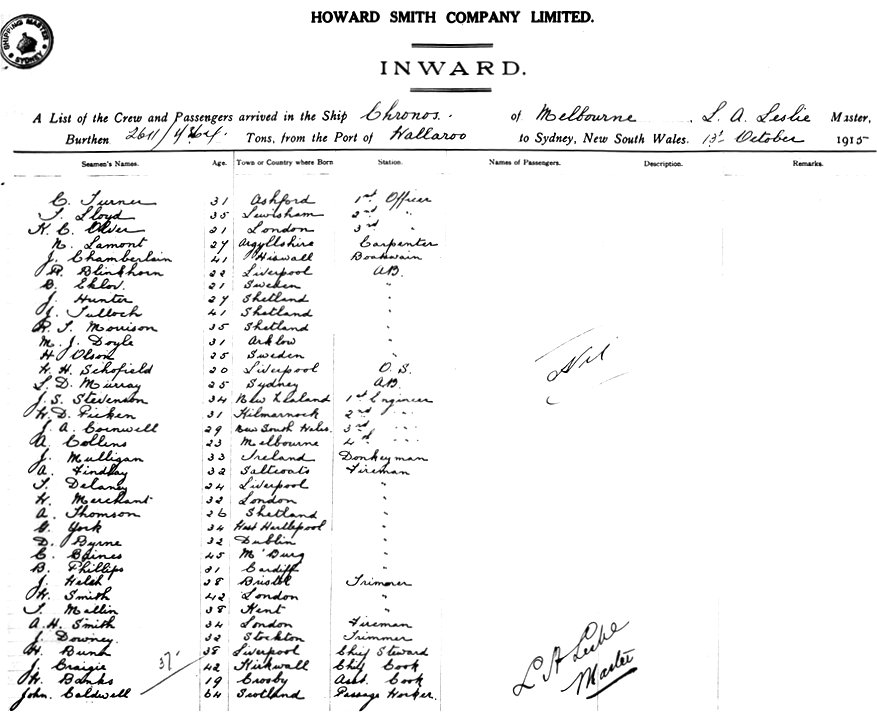 SHIPPING MASTER SYDNEY
HOWARD SMITH COMPANY LIMITED.
INWARD.
A List of the Crew and Passengers arrived in the Ship Chronos. of Melbourne L. A. Leslie Master,
Burthen 2611/ Tons, from the Port of Wallaroo to Sydney, New South Wales. 13' October 1915
Seamen's Names. Age. Town or Country where Born Station. Names of Passengers. Description. Remarks.
C. Turner 31 Ashford 1st Officer
T. Lloyd 35 Lewisham 2nd "
H. C. Olver 21 London 3rd "
N. Lamont 27 Argyllshire Carpenter
J. Chamberlain 41 Hiswall Boatswain
R. Blinkhorn 22 Liverpool AB.
B. Eklov. 21 Sweden "
J. Hunter 27 Shetland "
J. Tulloch 41 Shetland "
R. T. Morrison 35 Shetland "
M. J. Doyle 31 Arklow "
H Olson 25 Sweden "
W. H. Schofield 20 Liverpool O.S.
L. D. Murray 25 Sydney AB.
J. S. Stevenson 34 New Zealand 1st Engineer
W. D. Picken 31 Kilmarnock 2nd "
J. A. Cornwell 29 New South Wales. 3rd "
A. Collins 23 Melbourne 4th "
J. Mulligan 33 Ireland Donkeyman
A. Findlay 32 Saltcoats Fireman
T. Delaney 24 Liverpool "
W. Merchant 32 London "
A. Thomson 26 Shetland "
G. York 34 West Hartlepool "
D. Byrne 32 Dublin "
C. Baines 45 M'Burg "
B. Phillips 31 Cardiff "
J. Welsh 38 Bristol Trimmer
W. Smith 42 London "
T. Mallin 38 Kent "
A. H. Smith 34 London Fireman
J. Downey. 32 Stockton Trimmer
H. Bunn 38 Liverpool Chief Steward
J. Craigie 42 Kirkwall Chief Cook
W. Banks 19 Crosby Asst. Cook
John. Caldwell 64 Scotland Passage Worker.
37
Nil
L A Leslie
Master